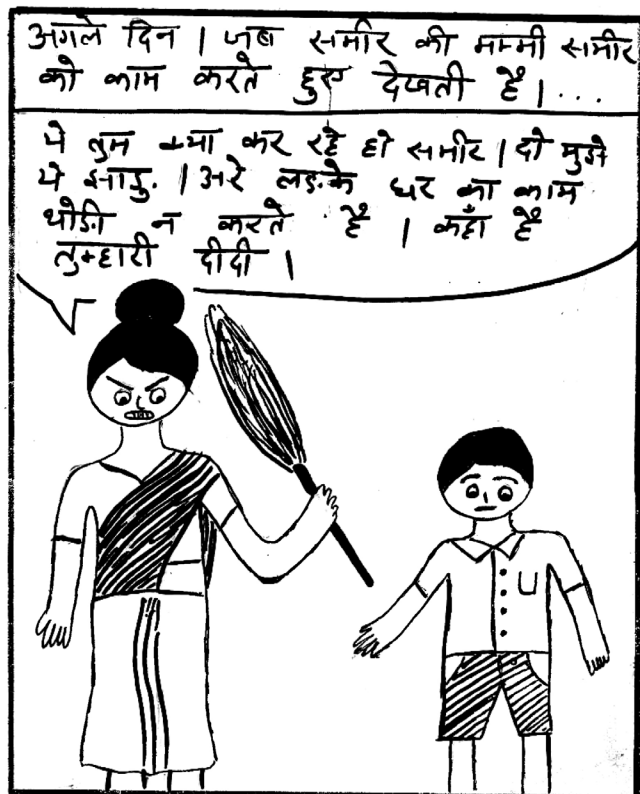 अगले दिन । जब समीर की मम्मी समीर
को काम करते हुए देखती है । ...
ये तुम क्या कर रहे हो समीर । दो मुझे
ये झाडु । अरे लड़के घर का काम
थोड़ी न करते है । कहाँ है
तुम्हारी दीदी ।